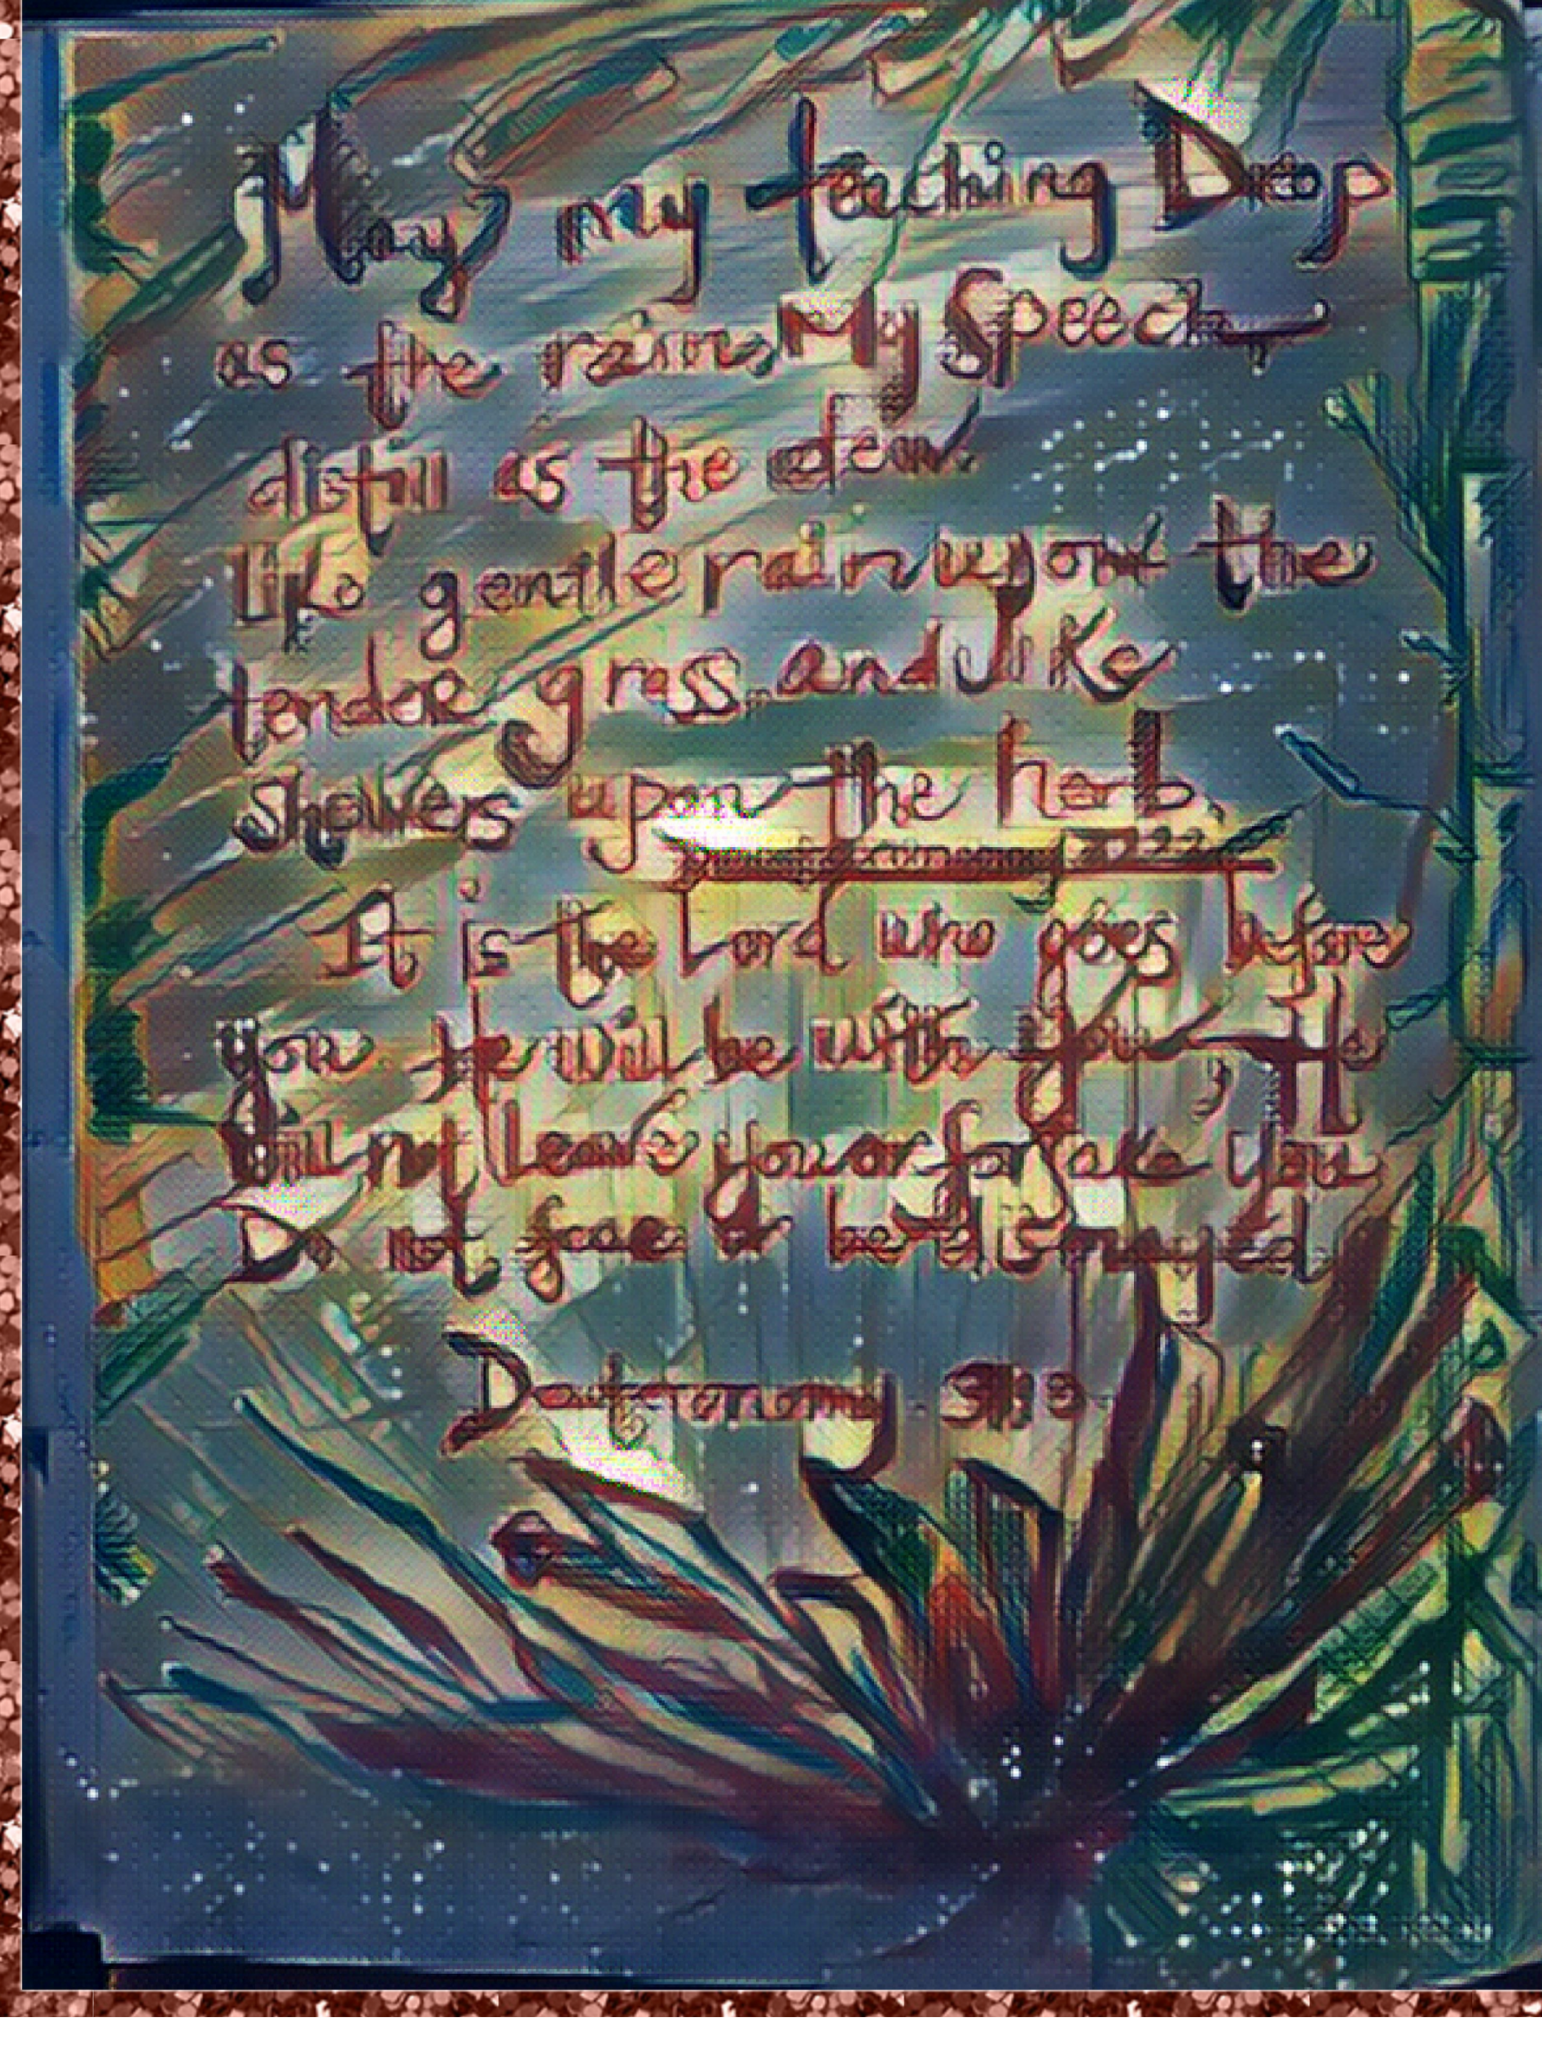 May my teaching Drop
as the rain, My Speech
distill as the dew.
like gentle rain upon the
tender grass, and like
showers upon the herb.
Deuteronomy
It is the Lord who goes before
you. He will be with you, He
will not leave you or forsake you
Do not fear or be dismayed
Deuteronomy 31:8